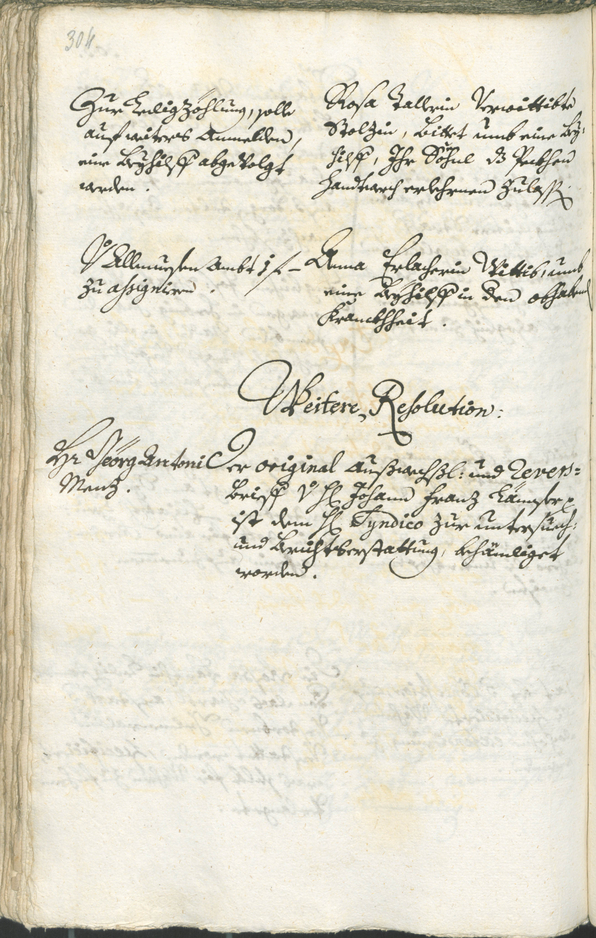 304
Zur Ledigzöhlung, solle
auf weiters Anmelden,
eine Beyhilff abgevolgt
werden.
Rosa Tallerin Verwittibte
Stolzin, Bittet umb eine Bey=
hilff, Ihr Söhnl d
Handtwerch erlehrnen zulassen
Allmusen Ambt 1 f
zu assignirn.
Anna Erlacherin Wittib, umb
eine Beyhilff in den obhabend
Kranckheit.
Weitere Resolution:
Hr Georg Antoni
Menz.
Der original Außwexl: und Revers=
brieff Hl Johann Franz
ist dem Hl Syndico zur untersuch=
und Berichtserstattung, behändiget
worden.